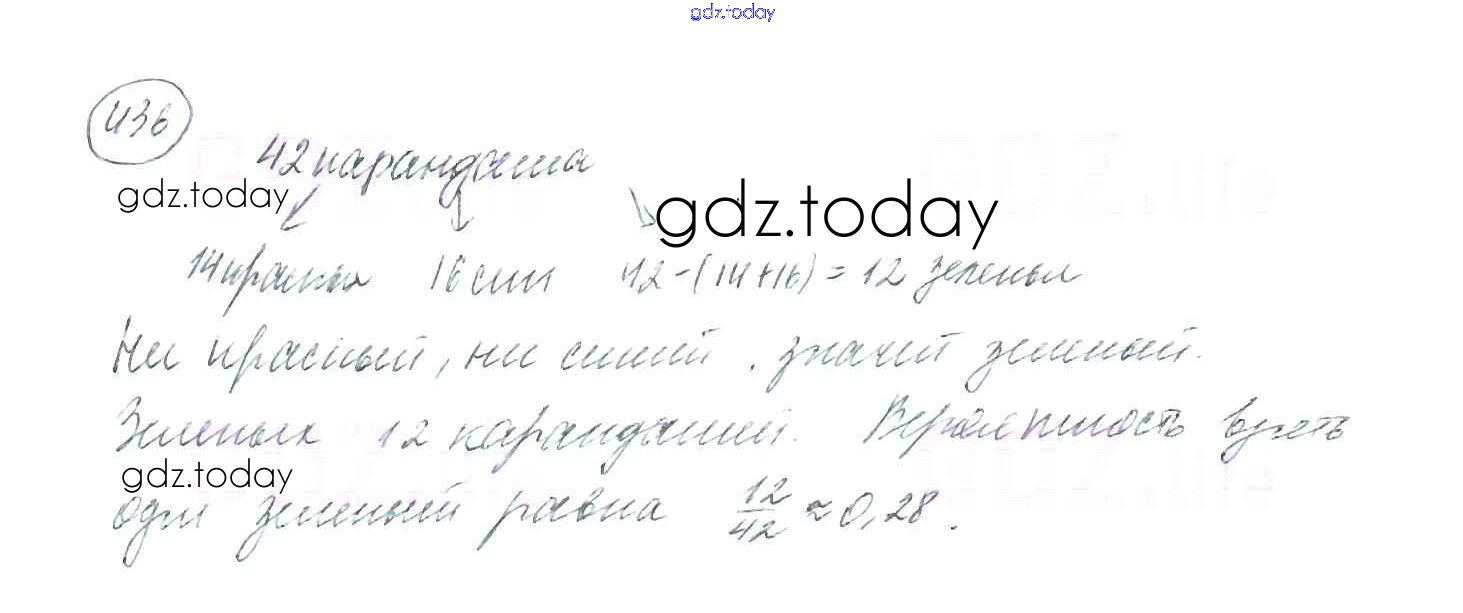 gdz.today
436
42 карандаша
gdz.today
gdz.today
14 красных 16 син 42-(14+16)=12 зеленых
Ни красный, ни синий, значит зеленый.
Зеленых 12 карандашей. Вероятность взять
gdz.today
один зеленый равна 12/42 ≈ 0,28.